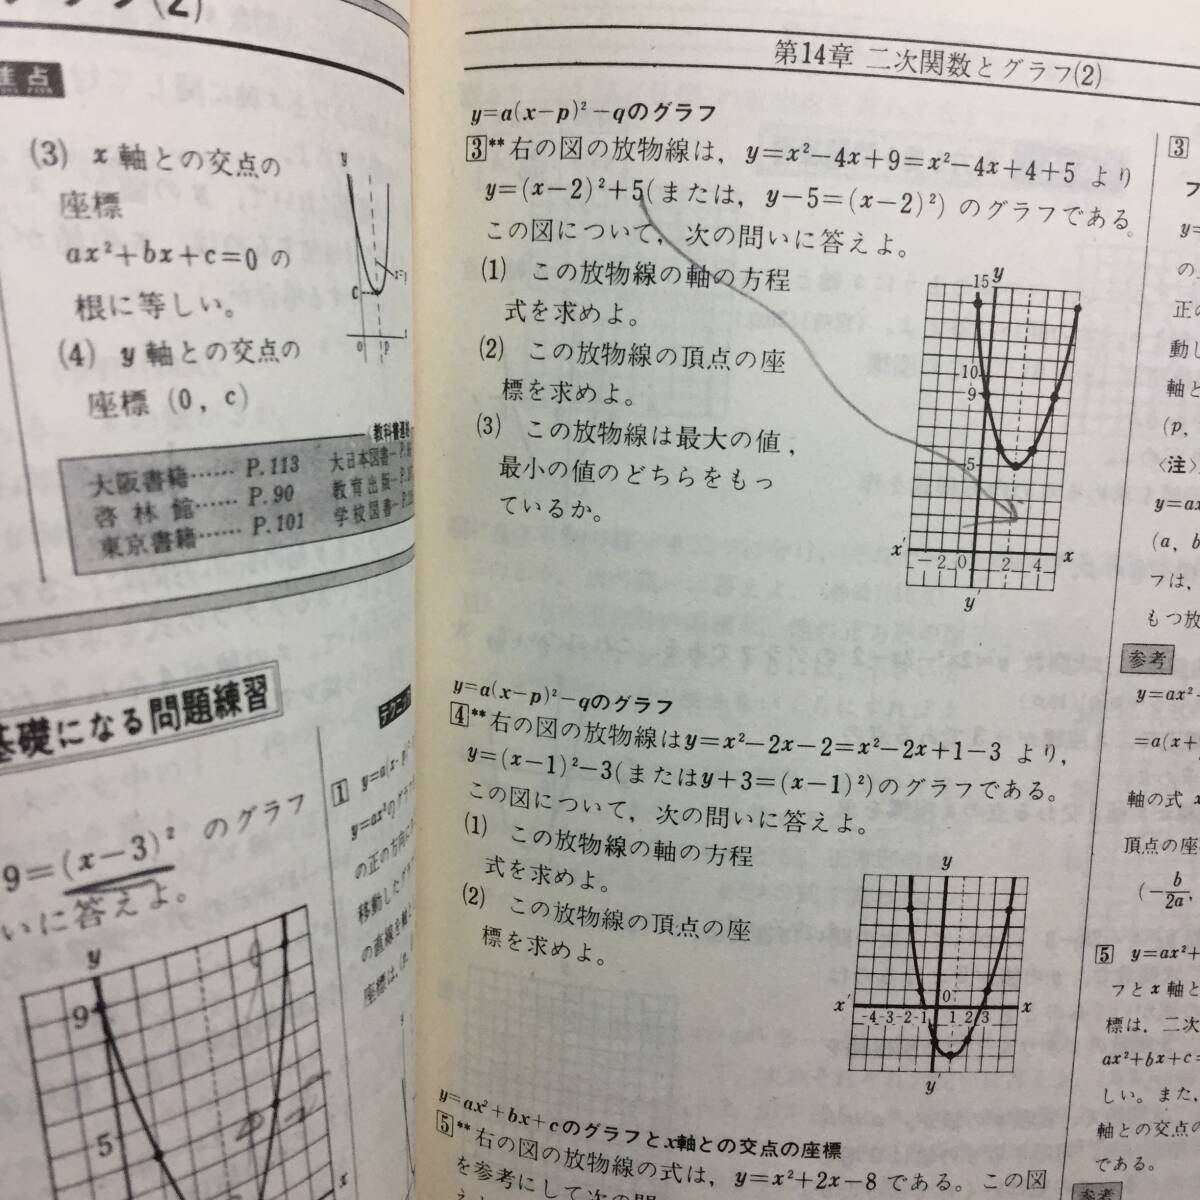 (2)
(3) x軸との交点の
座標
ax²+bx+c=0の
根に等しい。
(4) y軸との交点の
座標 (0, c)
y
c
0
p
大阪書籍…… P.113
啓林館…… P.90
東京書籍…… P.101
大日本図書
教育出版
学校図書
基礎になる問題練習
9=(x−3)² のグラフ
いに答えよ。
y
9
5
x
1
の正の方向に
移動したグラフ
の直線を軸と
第14章 二次関数とグラフ(2)
y=a(x−p)²−qのグラフ
3** 右の図の放物線は, y=x²−4x+9=x²−4x+4+5 より
y=(x−2)²+5(または, y−5=(x−2)²) のグラフである。
この図について, 次の問いに答えよ。
(1) この放物線の軸の方程
式を求めよ。
(2) この放物線の頂点の座
標を求めよ。
(3) この放物線は最大の値,
最小の値のどちらをもっ
ているか。
15
y
10
9
5
x′
−2
0
2
4
x
y′
y=a(x−p)²−qのグラフ
4** 右の図の放物線はy=x²−2x−2=x²−2x+1−3 より,
y=(x−1)²−3(またはy+3=(x−1)²)のグラフである。
この図について, 次の問いに答えよ。
(1) この放物線の軸の方程
式を求めよ。
(2) この放物線の頂点の座
標を求めよ。
y
0
x′
-4-3-2-1
1 2 3
x
y′
y=ax²+bx+cのグラフとx軸との交点の座標
5** 右の図の放物線の式は, y=x²+2x−8である。この図
を参考にして次の問
3
フ
y=
の
正の
動し
軸と
(p,
〈注〉
y=ax
(a, b
フは,
もつ放
参考
y=ax²
=a(x+
軸の式 x
頂点の座
(−b/2a,
5 y=ax²+
フとx軸と
標は, 二次
ax²+bx+c=
しい。また,
軸との交点の
である。
参考